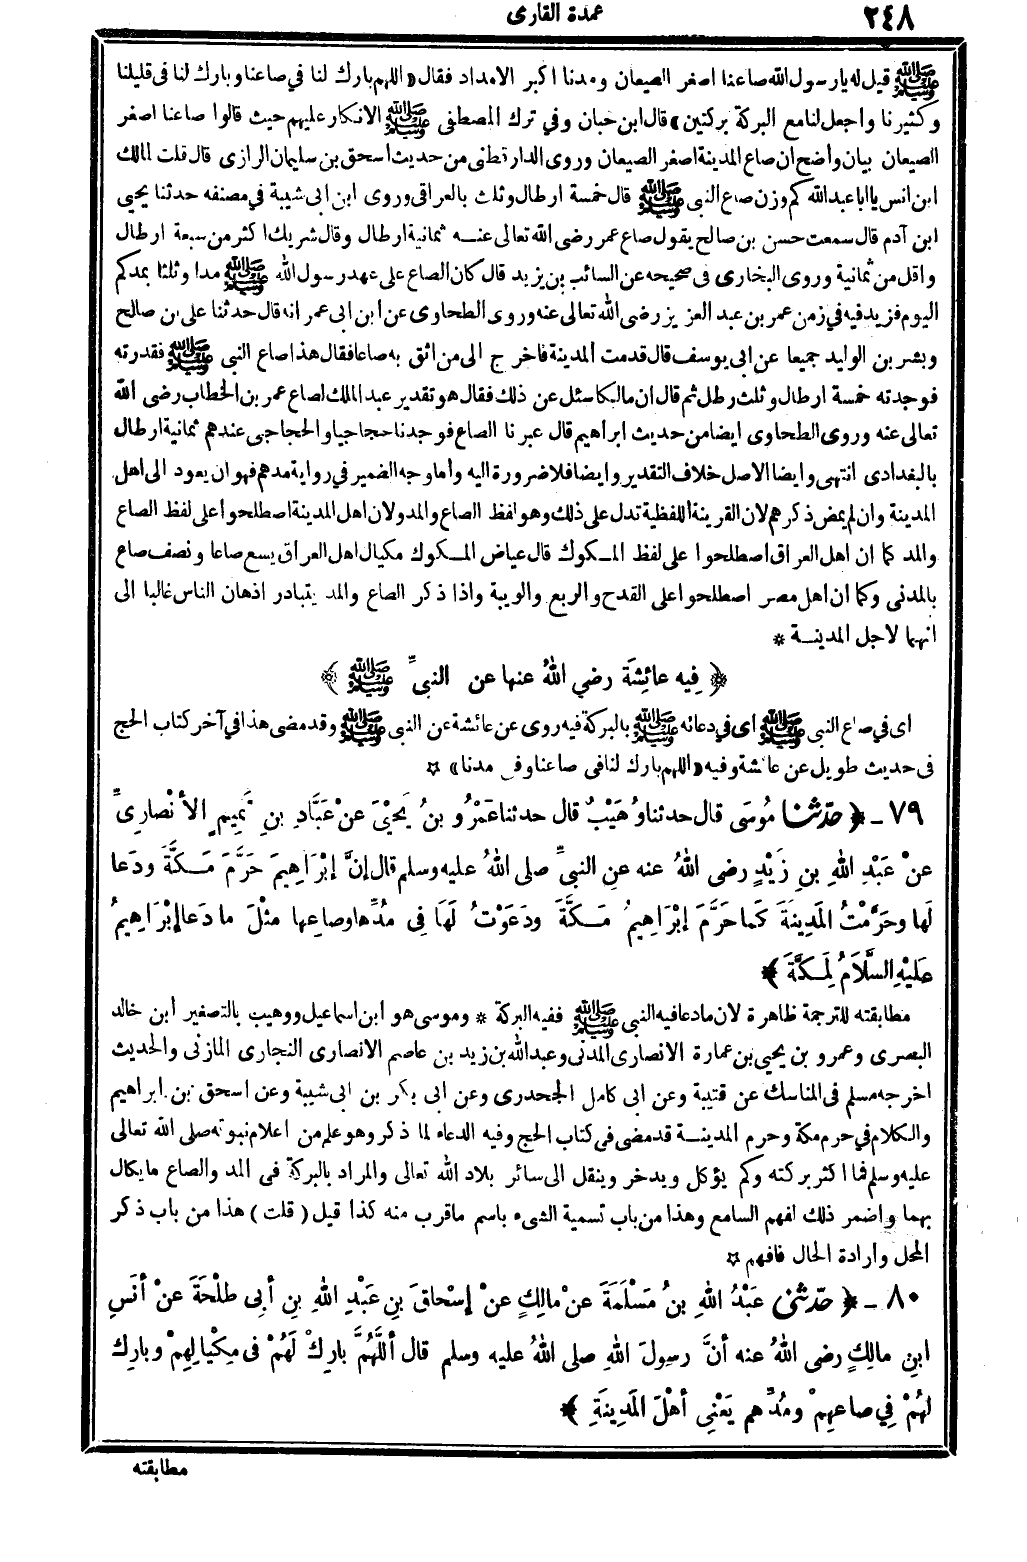 ٢٤٨
عمدة القارى
ﷺ قيل له يارسول الله صاعنا اصغر الصيعان ومدنا اكبر الامداد فقال «اللهم بارك لنا في صاعنا وبارك لنا فى قليلنا
وكثيرنا واجعل لنا مع البركة بركتين» قال ابن حبان وفي ترك المصطفى ﷺ الانكار عليهم حيث قالوا صاعنا اصغر
الصيعان بيان واضح ان صاع المدينة اصغر الصيعان وروى الدارقطنى من حديث اسحق بن سليمان الرازى قال قلت لمالك
ابن انس يا ابا عبد الله كم وزن صاع النبى ﷺ قال خمسة ارطال وثلث بالعراقى وروى ابن ابى شيبة في مصنفه حدثنا يحيى
ابن آدم قال سمعت حسن بن صالح يقول صاع عمر رضى الله تعالى عنه ثمانية ارطال وقال شريك اكثر من سبعة ارطال
واقل من ثمانية وروى البخارى فى صحيحه عن السائب بن يزيد قال كان الصاع على عهد رسول الله ﷺ مدا وثلثا بمدكم
اليوم فزيد فيه في زمن عمر بن عبد العزيز رضى الله تعالى عنه وروى الطحاوى عن ابن ابى عمر انه قال حدثنا على بن صالح
وبشر بن الوليد جميعا عن ابى يوسف قال قدمت المدينة فاخرج الى من اثق به صاعا فقال هذا صاع النبى ﷺ فقدرته
فوجدته خمسة ارطال وثلث رطل ثم قال ان مالكا سئل عن ذلك فقال هو تقدير عبد الملك لصاع عمر بن الخطاب رضى الله
تعالى عنه وروى الطحاوى ايضا من حديث ابراهيم قال عيرنا الصاع فوجدنا حجاجيا والحجاجى عندهم ثمانية ارطال
بالبغدادى انتهى وايضا الاصل خلاف التقدير وايضا فلا ضرورة اليه واما وجه الضمير في رواية مدهم فهو ان يعود الى اهل
المدينة وان لم يمض ذكرهم لان القرينة اللفظية تدل على ذلك وهو لفظ الصاع والمد ولان اهل المدينة اصطلحوا على لفظ الصاع
والمد كما ان اهل العراق اصطلحوا على لفظ المكوك قال عياض المكوك مكيال اهل العراق يسع صاعا ونصف صاع
بالمدنى وكما ان اهل مصر اصطلحوا على القدح والربع والويبة واذا ذكر الصاع والمد يتبادر اذهان الناس غالبا الى
انهما لاجل المدينة *
﴿ فِيهِ عائِشَة رضي اللهُ عنها عن النبىِّ ﷺ ﴾
اى في صاع النبى ﷺ اى في دعائه ﷺ بالبركة فيه روى عن عائشة عن النبى ﷺ وقد مضى هذا في آخر كتاب الحج
فى حديث طويل عن عائشة وفيه «اللهم بارك لنا فى صاعنا وفى مدنا» ✩
٧٩ - ﴿ حدّثنا مُوسَى قال حدثنا وُهَيْبٌ قال حدثنا عَمْرُو بنُ يَحْيَى عنْ عَبَّادِ بنِ تَمِيمٍ الأنْصارىِّ
عنْ عَبْدِ اللهِ بنِ زَيْدٍ رضى اللهُ عنه عنِ النبىِّ صلى اللهُ عليه وسلم قال إنَّ إبْرَاهِيمَ حَرَّمَ مَكَّةَ ودَعا
لَها وحَرَّمْتُ المَدِينَةَ كَما حَرَّمَ إبْرَاهِيمُ مَكَّةَ ودَعَوْتُ لَهَا فى مُدِّها وصاعِها مثْلَ ما دَعا إبْرَاهِيمُ
عَلَيْهِ السَّلَامُ لِمَكَّةَ ﴾
مطابقته للترجمة ظاهرة لان ما دعا فيه النبى ﷺ ففيه البركة * وموسى هو ابن اسماعيل ووهيب بالتصغير ابن خالد
البصرى وعمرو بن يحيى بن عمارة الانصارى المدنى وعبد الله بن زيد بن عاصم الانصارى النجارى المازنى والحديث
اخرجه مسلم فى المناسك عن قتيبة وعن ابى كامل الجحدرى وعن ابى بكر بن ابى شيبة وعن اسحق بن ابراهيم
والكلام في حرم مكة وحرم المدينة قد مضى فى كتاب الحج وفيه الدعاء لما ذكر وهو علم من اعلام نبوته صلى الله تعالى
عليه وسلم فما اكثر بركته وكم يؤكل ويدخر وينقل الى سائر بلاد الله تعالى والمراد بالبركة فى المد والصاع ما يكال
بهما واضمر ذلك لفهم السامع وهذا من باب تسمية الشىء باسم ما قرب منه كذا قيل (قلت) هذا من باب ذكر
المحل وارادة الحال فافهم ✩
٨٠ - ﴿ حدّثنى عَبْدُ اللهِ بنُ مَسْلَمَةَ عنْ مالِكٍ عنْ إسْحاقَ بنِ عَبْدِ اللهِ بنِ أبى طلْحَةَ عنْ أنَسِ
ابنِ مالِكٍ رضى اللهُ عنه أنَّ رسولَ اللهِ صلى اللهُ عليه وسلم قال أللَّهُمَّ بارِكْ لَهُمْ فى مِكْيالِهِمْ وبارِك
لهُمْ فِي صاعِهِمْ ومُدِّهم يَعْنِى أهْلَ المَدِينَةِ ﴾
مطابقته